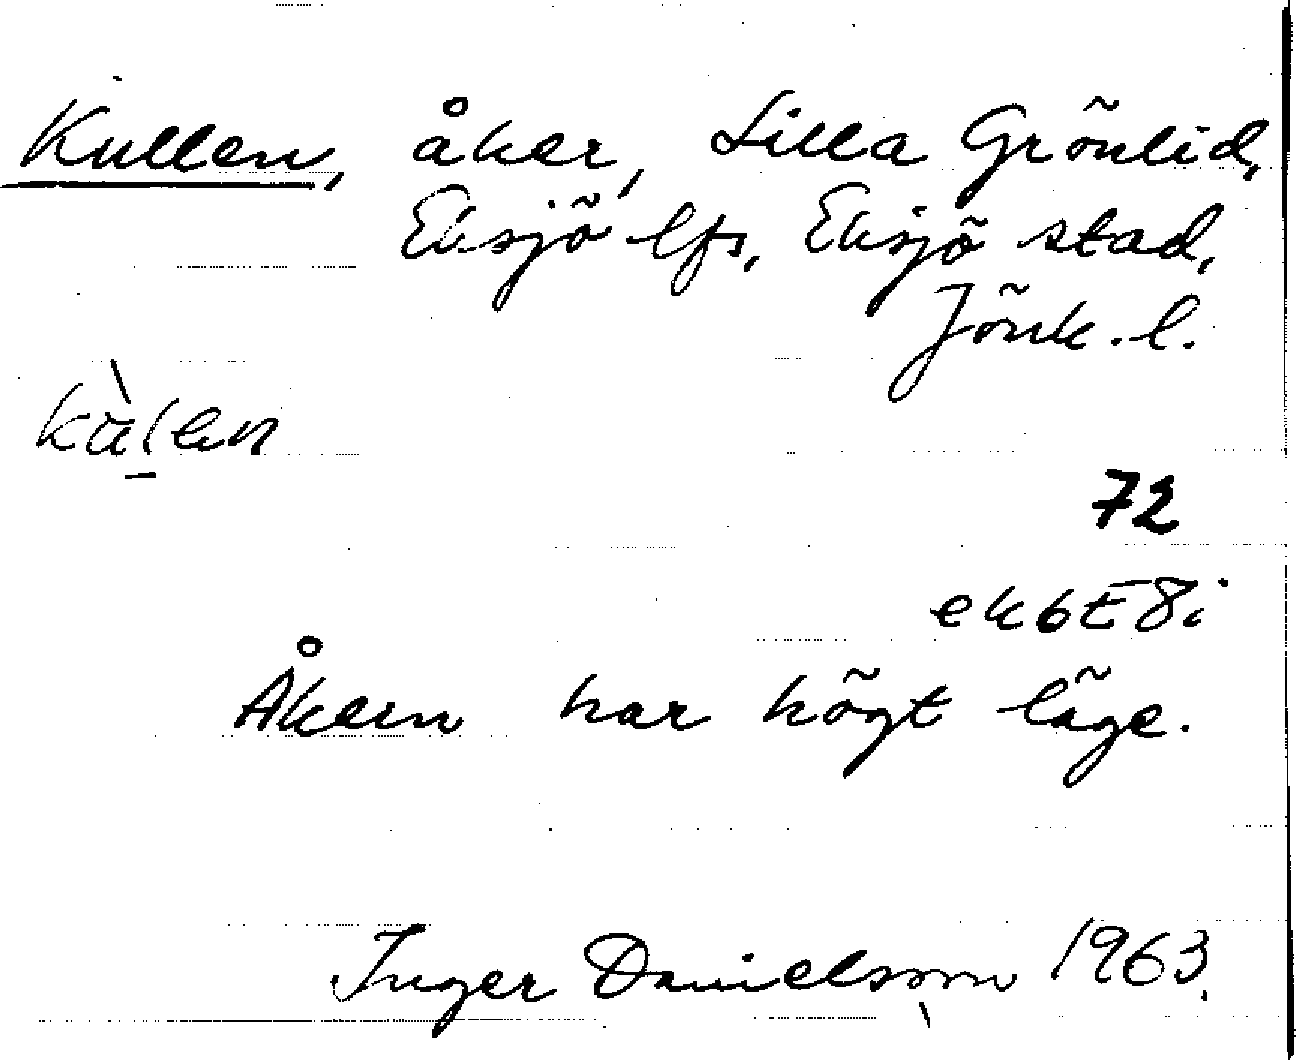 Kullen, åker, Lilla Grönlid,
Eksjö lfs, Eksjö stad,
Jönk. l.
72
ek6E8i
Åkern har högt läge.
Inger Danielsson 1963.